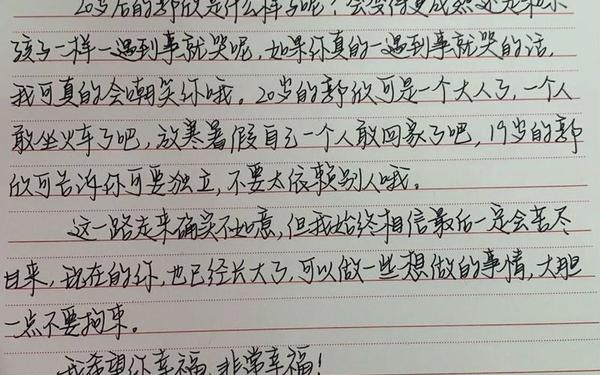 20岁后的郭欣是什么样子呢？会变得更成熟还是和小
孩子一样一遇到事就哭呢，如果你真的一遇到事就哭的话，
我可真的会嘲笑你哦。20岁的郭欣可是一个大人了，一个人
敢坐火车了吧，放寒暑假自己一个人敢回家了吧，19岁的郭
欣可告诉你可要独立，不要太依赖别人哦。
这一路走来确实不如意，但我始终相信最后一定会苦尽
甘来，现在的你，也已经长大了，可以做一些想做的事情，大胆
一点不要拘束。
我希望你幸福，非常幸福！